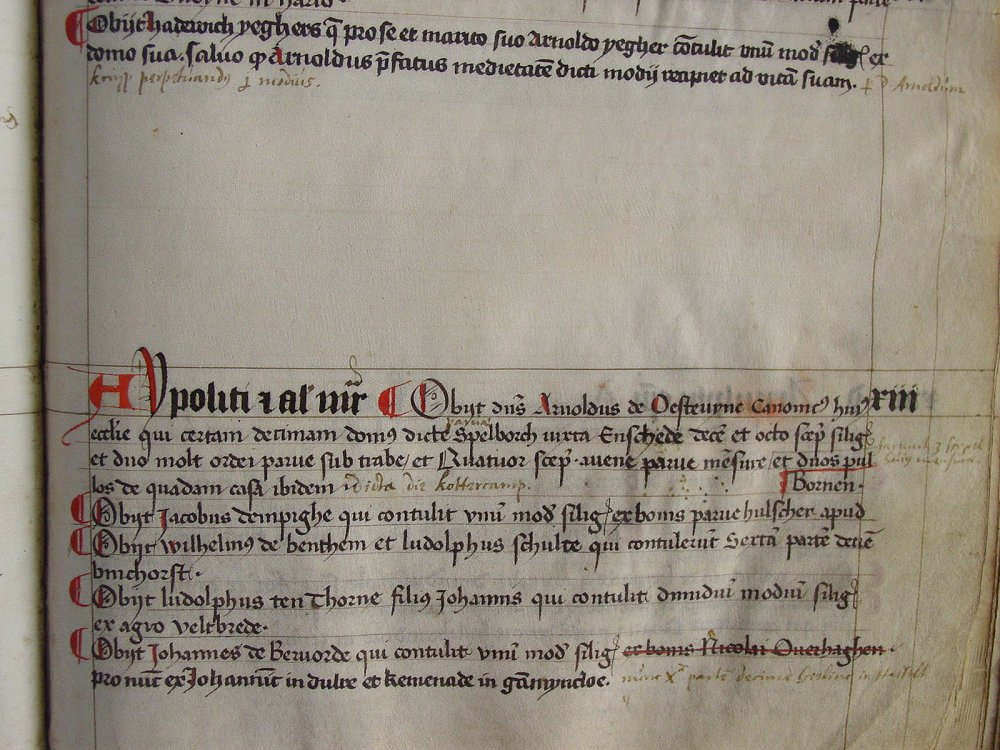 Obijt hadewich yeghers q̄ pro se et marito suo Arnoldo yegher cōtulit vnū mod̄ silig ex
domo sua. saluo qp Arnoldus p̄fatus medietatē dicti modij recipiet ad vitā suam.
Arnoldum
Ypoliti ⁊ al' mr̄ Obijt dn̄s Arnoldus de Oesteuyne Canonic9 hui9 xiii
eccl'ie qui certam decimam domus dicte Spelborch iuxta Enschede decē et octo scep̄ silig
parua
et duo molt ordei parue sub trabe/ et Quatuor scep̄. auene parue mēsure/ et duos pul
los de quadam casa ibidem dicta die kottercamp.
Bornen.
Obijt Jacobus dempighe qui contulit vnū mod̄ silig ex bonis parue hulscher apud
Obijt wilhelmus de benthem et ludolphus schulte qui contulerūt Sextā partē decīe
binchorst.
Obijt ludolphus ten Thorne filius Johannis qui contulit dimidiū modiū silig
ex agro veltbrede.
Obijt Johannes de Beruorde qui contulit vnū mod̄ silig ex bonis Nicolai Ouerhaghen.
pro nūc ex Johannūc in dulre et kemenade in